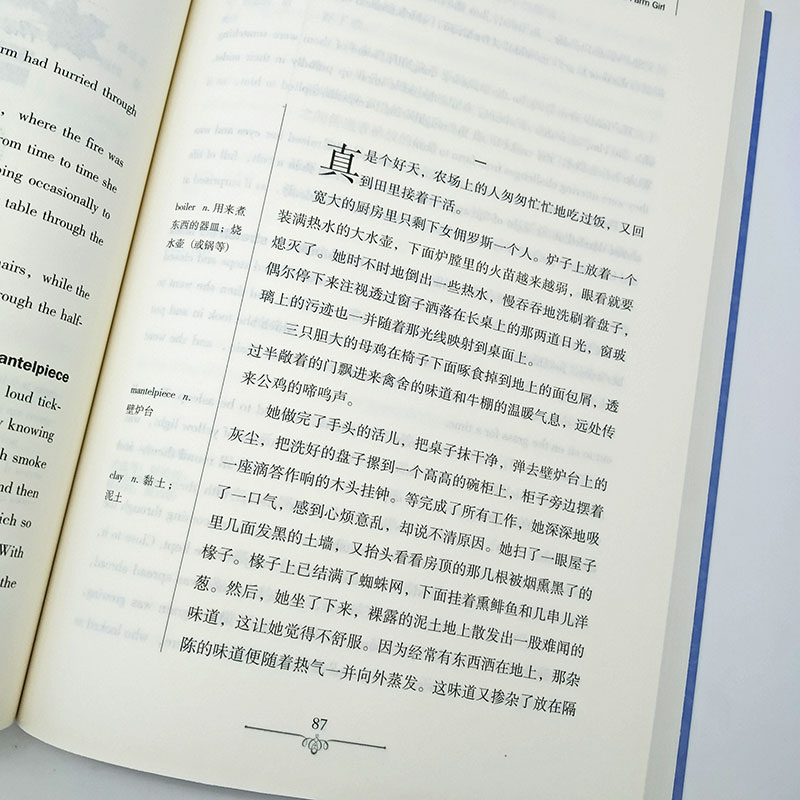 rm had hurried through
, where the fire was
rom time to time she
ping occasionally to
table through the
hairs, while the
rough the half-
mantelpiece
loud tick-
y knowing
h smoke
nd then
ich so
With
the
Farm Girl
一
真是个好天，农场上的人匆匆忙忙地吃过饭，又回
到田里接着干活。
宽大的厨房里只剩下女佣罗斯一个人。炉子上放着一个
装满热水的大水壶，下面炉膛里的火苗越来越弱，眼看就要
熄灭了。她时不时地倒出一些热水，慢吞吞地洗刷着盘子，
偶尔停下来注视透过窗子洒落在长桌上的那两道日光，窗玻
璃上的污迹也一并随着那光线映射到桌面上。
三只胆大的母鸡在椅子下面啄食掉到地上的面包屑，透
过半敞着的门飘进来禽舍的味道和牛棚的温暖气息，远处传
来公鸡的啼鸣声。
她做完了手头的活儿，把桌子抹干净，弹去壁炉台上的
灰尘，把洗好的盘子摞到一个高高的碗柜上，柜子旁边摆着
一座滴答作响的木头挂钟。等完成了所有工作，她深深地吸
了一口气，感到心烦意乱，却说不清原因。她扫了一眼屋子
里几面发黑的土墙，又抬头看看房顶的那几根被烟熏黑了的
椽子。椽子上已结满了蜘蛛网，下面挂着熏鲱鱼和几串儿洋
葱。然后，她坐了下来，裸露的泥土地上散发出一股难闻的
味道，这让她觉得不舒服。因为经常有东西洒在地上，那杂
陈的味道便随着热气一并向外蒸发。这味道又掺杂了放在隔
boiler n. 用来煮
东西的器皿；烧
水壶（或锅等）
mantelpiece n.
壁炉台
clay n. 黏土；
泥土
87